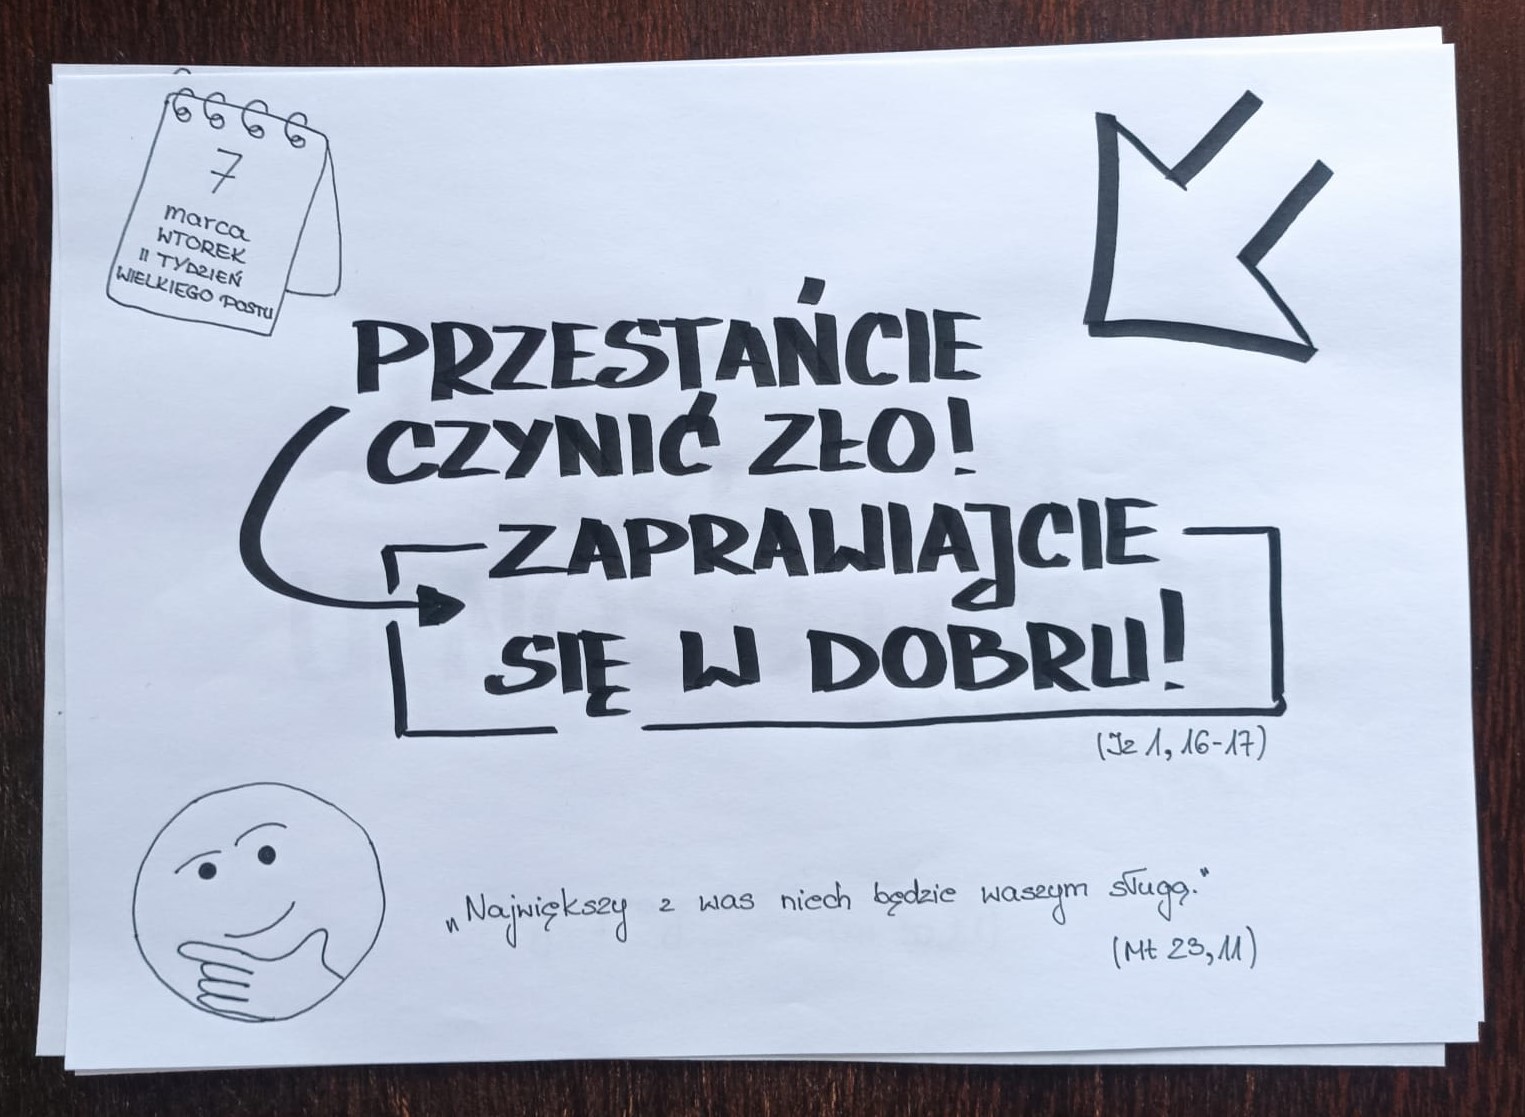 7
marca
WTOREK
II TYDZIEŃ
WIELKIEGO POSTU
PRZESTAŃCIE
CZYNIĆ ZŁO!
ZAPRAWIAJCIE
SIĘ W DOBRU!
(Iz 1, 16-17)
„Największy z was niech będzie waszym sługą."
(Mt 23, 11)